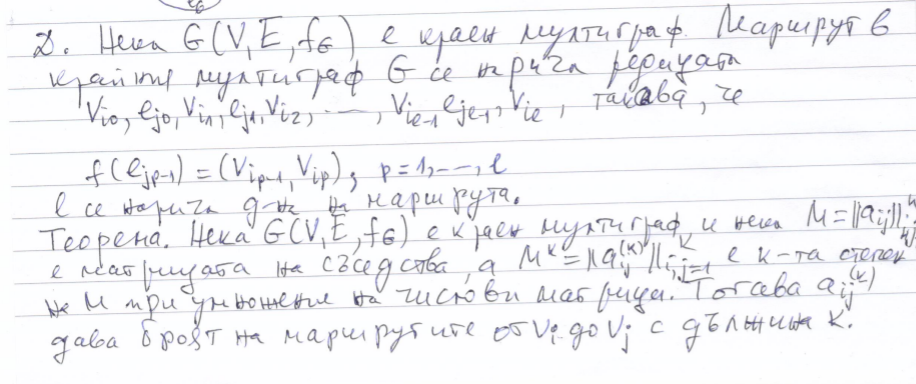 Д. Нека G(V,E,f_G) е краен мултиграф. Маршрут в
крайния мултиграф G се нарича редицата
v_{i0}, e_{j0}, v_{i1}, e_{j1}, v_{i2}, ..., v_{il-1} e_{jl-1}, v_{il}, такава, че
f(e_{jp-1}) = (v_{ip-1}, v_{ip}), p = 1, ..., l
l се нарича д-на на маршрута.
Теорема. Нека G(V,E,f_G) е краен мултиграф и нека M = ||a_{ij}||
е матрицата на съседства, а M^k = ||a_{ij}^{(k)}||_{i,j=1} е k-та степен
на M при умножение на числови матрици. Тогава a_{ij}^{(k)}
дава броят на маршрутите от v_i до v_j с дължина k.